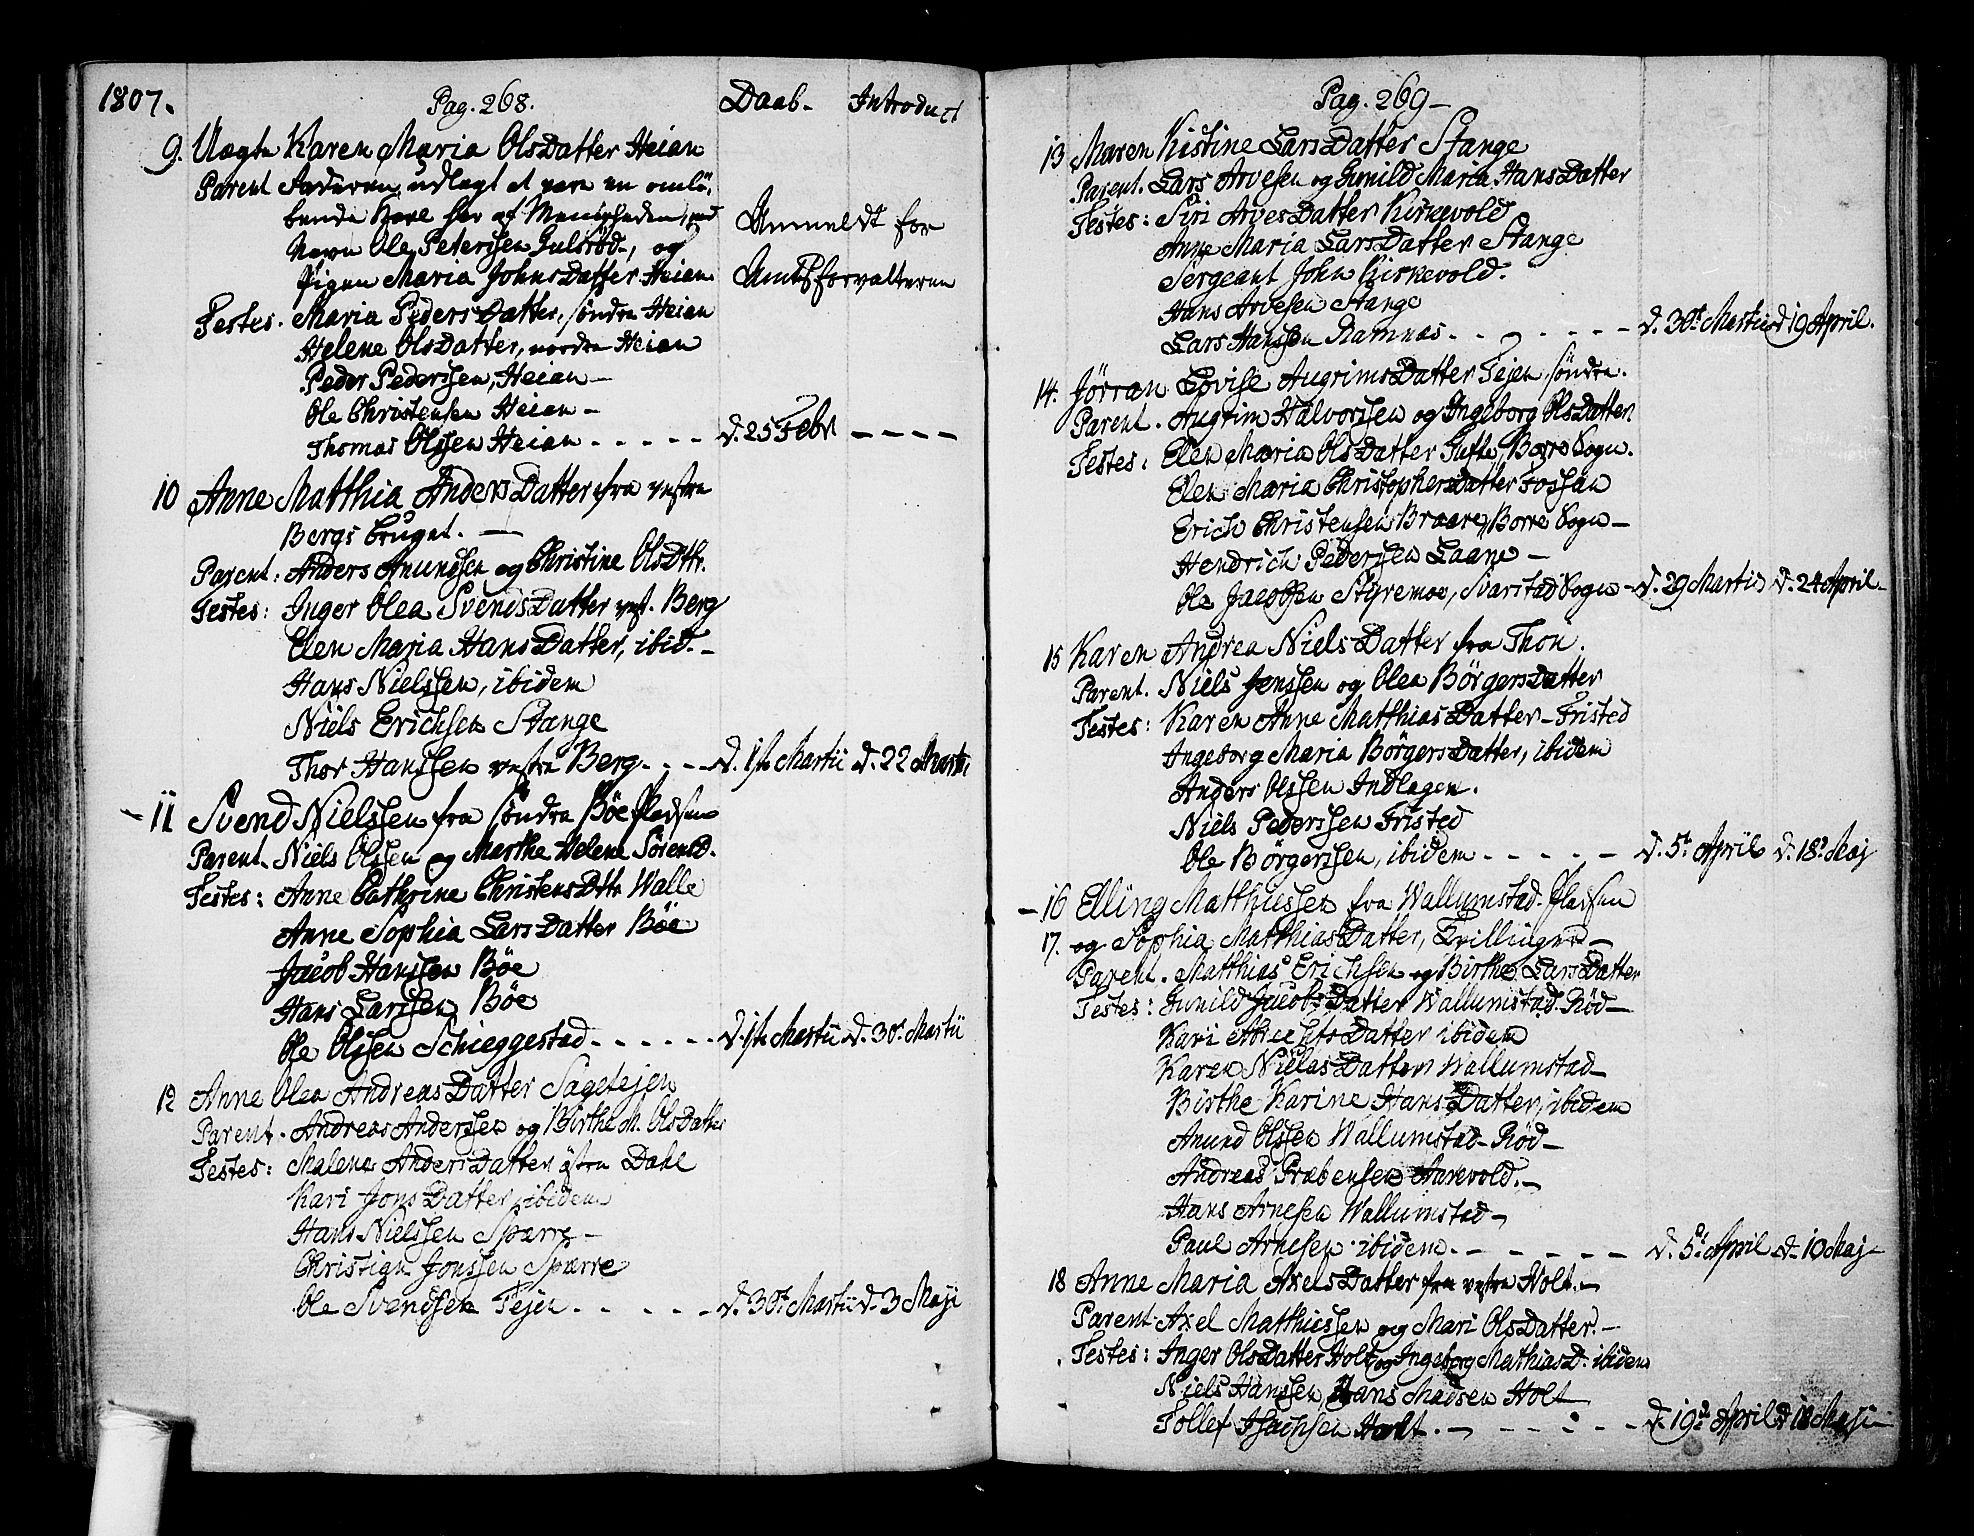 1807.
Pag. 268.
Daab. Introduct
9. Uægte Karen Maria OlsDatter Heian
Parent Faderen udlagt at være en omlö,
bende Karl her af Menigheden, ved
Navn Ole Peterssen Gulsröd, og
Pigen Maria JohnsDatter Heian.
Anmeldt for
Amtsforvalteren
Testes. Maria PedersDatter, söndre Heian
Helene OlsDatter, nordre Heian
Peder Pederssen, Heian
Ole Christensen Heian
Thomas Olssen Heian - - - - - d. 25 Febr - - - -
10 Anne Matthia AndersDatter fra vestre
Bergs bruget.
Parent: Anders Amundsen og Christine OlsDttr.
Testes: Inger Olea SvendsDatter vest. Berg
Elen Maria HansDatter, ibid.
Hans Nielssen, ibidem
Niels Erichsen Stange
Thor Hanssen vestre Berg - - - d. 1ste Martii d. 22 Martii
- 11 Svend Nielssen fra söndre Böe Pladsen
Parent. Niels Olssen og Marthe Helene SörensD.
Testes: Anne Cathrine ChristensDttr Walle
Anne Sophia LarsDatter Böe
Jacob Hanssen Böe
Hans Larssen Böe
Ole Olssen Schieggestad - - - - - - d. 1ste Martii d. 30t Martii
12 Anne Olea AndreasDatter Sagetejen
Parent. Andreas Anderssen og Birthe M. OlsDatter
Testes: Malene AndersDatter östre Dahl
Kari JonsDatter ibidem
Hans Nielssen Spærre
Christian Jonssen Spærre
Ole Svendsen Tejen - - - - - d. 30t Martii d. 3 Maji
Pag. 269
13 Maren Kistine LarsDatter Stange
Parent. Lars Arvesen og Gunild Maria HansDatter
Testes: Siri ArvesDatter Kirkevold
Anne Maria LarsDatter Stange
Sergeant John Kirkevold.
Hans Arvesen Stange
Lars Hanssen Ramnæs - - - - - - - d. 30t Martii d 19 April.
14. Jörran Lovise AugrimsDatter Tejen söndre.
Parent. Augrim Halvorssen og Ingeborg OlsDatter
Testes: Elen Maria OlsDatter Gutte, Borre Sogn.
Elen Maria ChristophersDatter Fossan
Erich Christensen Braare, Borre Sogn
Hendrich Pederssen Laane
Ole Jacobsen Styremoe, Svarstad Sogn - d. 29 Martii d. 24 April
15 Karen Andrea NielsDatter fra Thon.
Parent. Niels Jenssen og Olea BörgersDatter
Testes: Karen Anne MatthiasDatter Fristed
Ingeborg Maria BörgersDatter, ibidem
Anders Olssen Indlagen.
Niels Pederssen Fristed
Ole Börgerssen, ibidem - - - - - d. 5t April d. 18t Maj
- 16 Elling Matthiessen fra Wallumstad-Pladsen
17. og Sophia MatthiasDatter, Tvillinger
Parent. Matthias Erichsen og Birthe LarsDatter
Testes: Gunild JacobsDatter Wallumstad-Röd
Kari DatterIbidem
Karen NielsDatter Wallumstad
Birthe Karine HansDatter, ibidem
Amund Olssen Wallumstad-Röd
Andreas Præbensen Aarevold.
Hans Arnesen Wallumstad
Paul Arnesen ibidem - - - - - - d. 5t April d. 10 Maj
18 Anne Maria AxelsDatter fra vestre Holt.
Parent Axel Matthiessen og Mari OlsDatter.
Testes: Inger OlsDatter Holt og Ingeborg MathiasD. ibidem
Niels Hanssen, Hans Madsen Holt
Tollef Isachsen Holt. - - - - - d. 19de April d 18 Maji